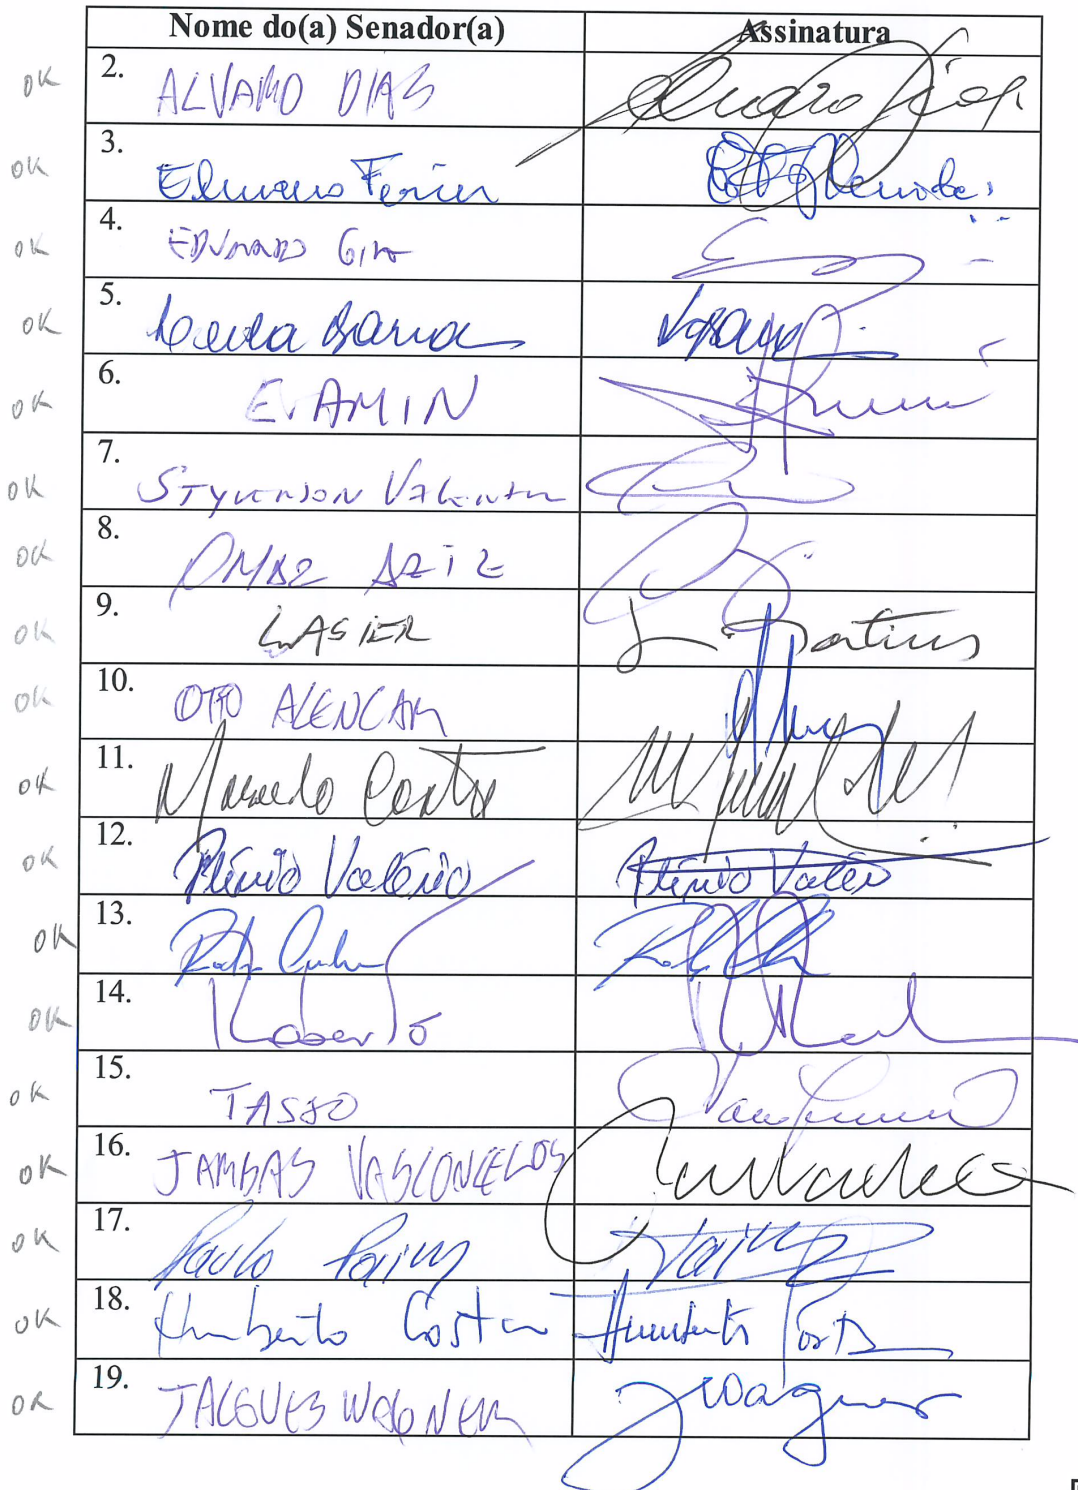 Nome do(a) Senador(a) Assinatura
ok 2. ALVARO DIAS Alvaro Dias
ok 3. Elmano Ferrer
ok 4. EDUARDO GIRÃO
ok 5. Leila Barros
ok 6. E. AMIN Amin
ok 7. STYVENSON VALENTIM
ok 8. OMAR AZIZ
ok 9. LASIER L. Martins
ok 10. OTTO ALENCAR
ok 11. Marcelo Castro
ok 12. Plínio Valério Plínio Valério
ok 13. Rodrigo Cunha
ok 14. Roberto
ok 15. TASSO
ok 16. JARBAS VASCONCELOS
ok 17. Paulo Paim Paim
ok 18. Humberto Costa Humberto Costa
ok 19. JACQUES WAGNER JWagner